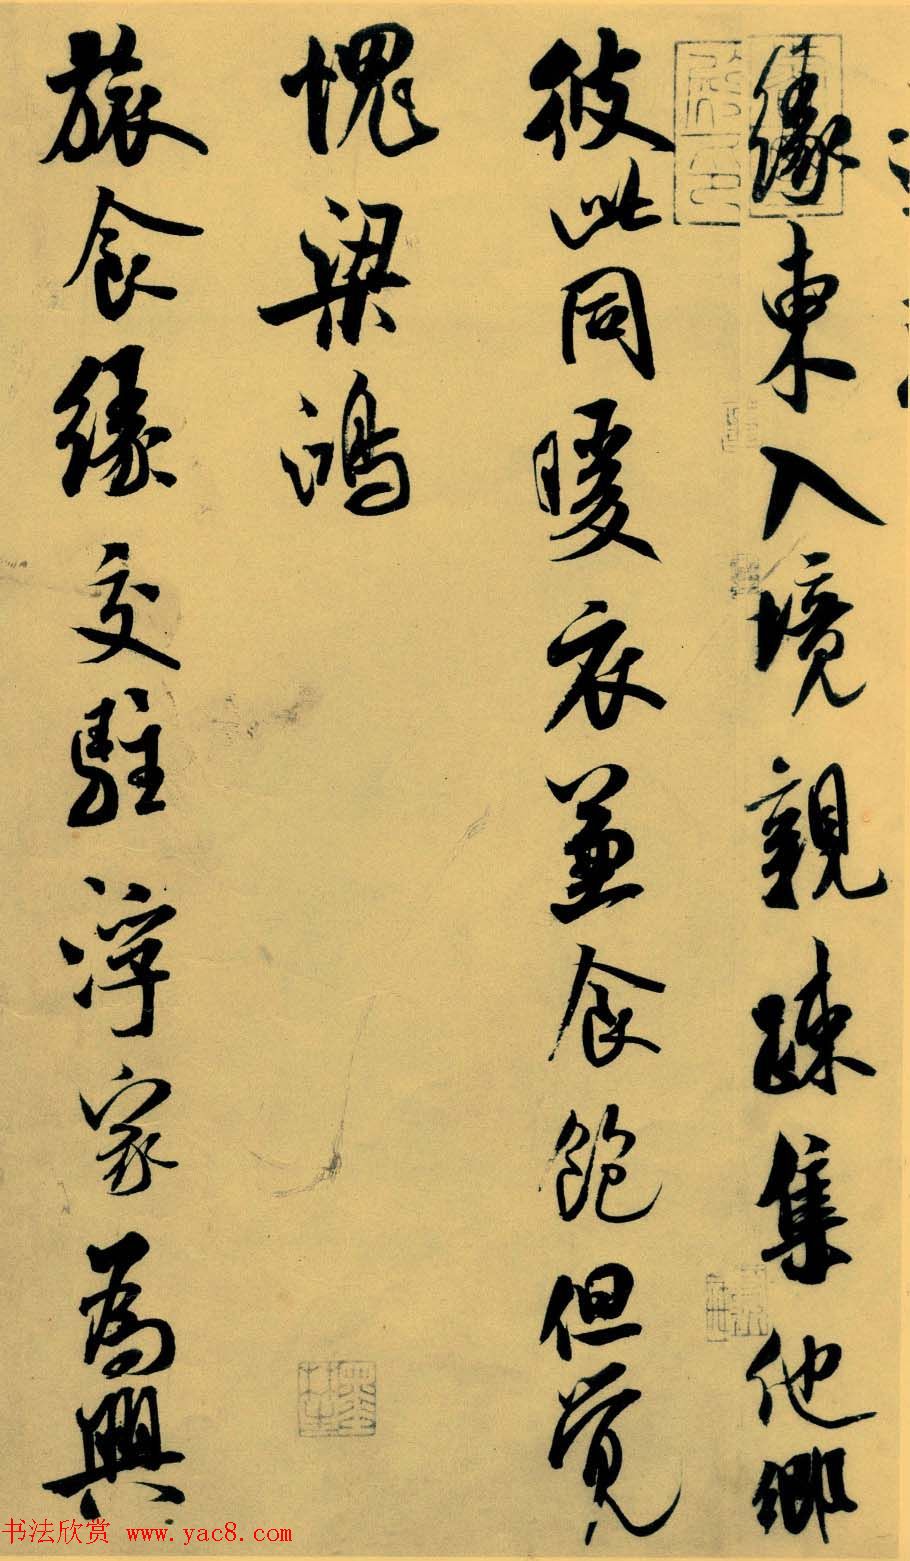 緣東入境親踈集他鄉
彼此同暖衣兼食飽但覺
愧梁鴻
旅食緣交駐浮家為興
书法欣赏 www.yac8.com